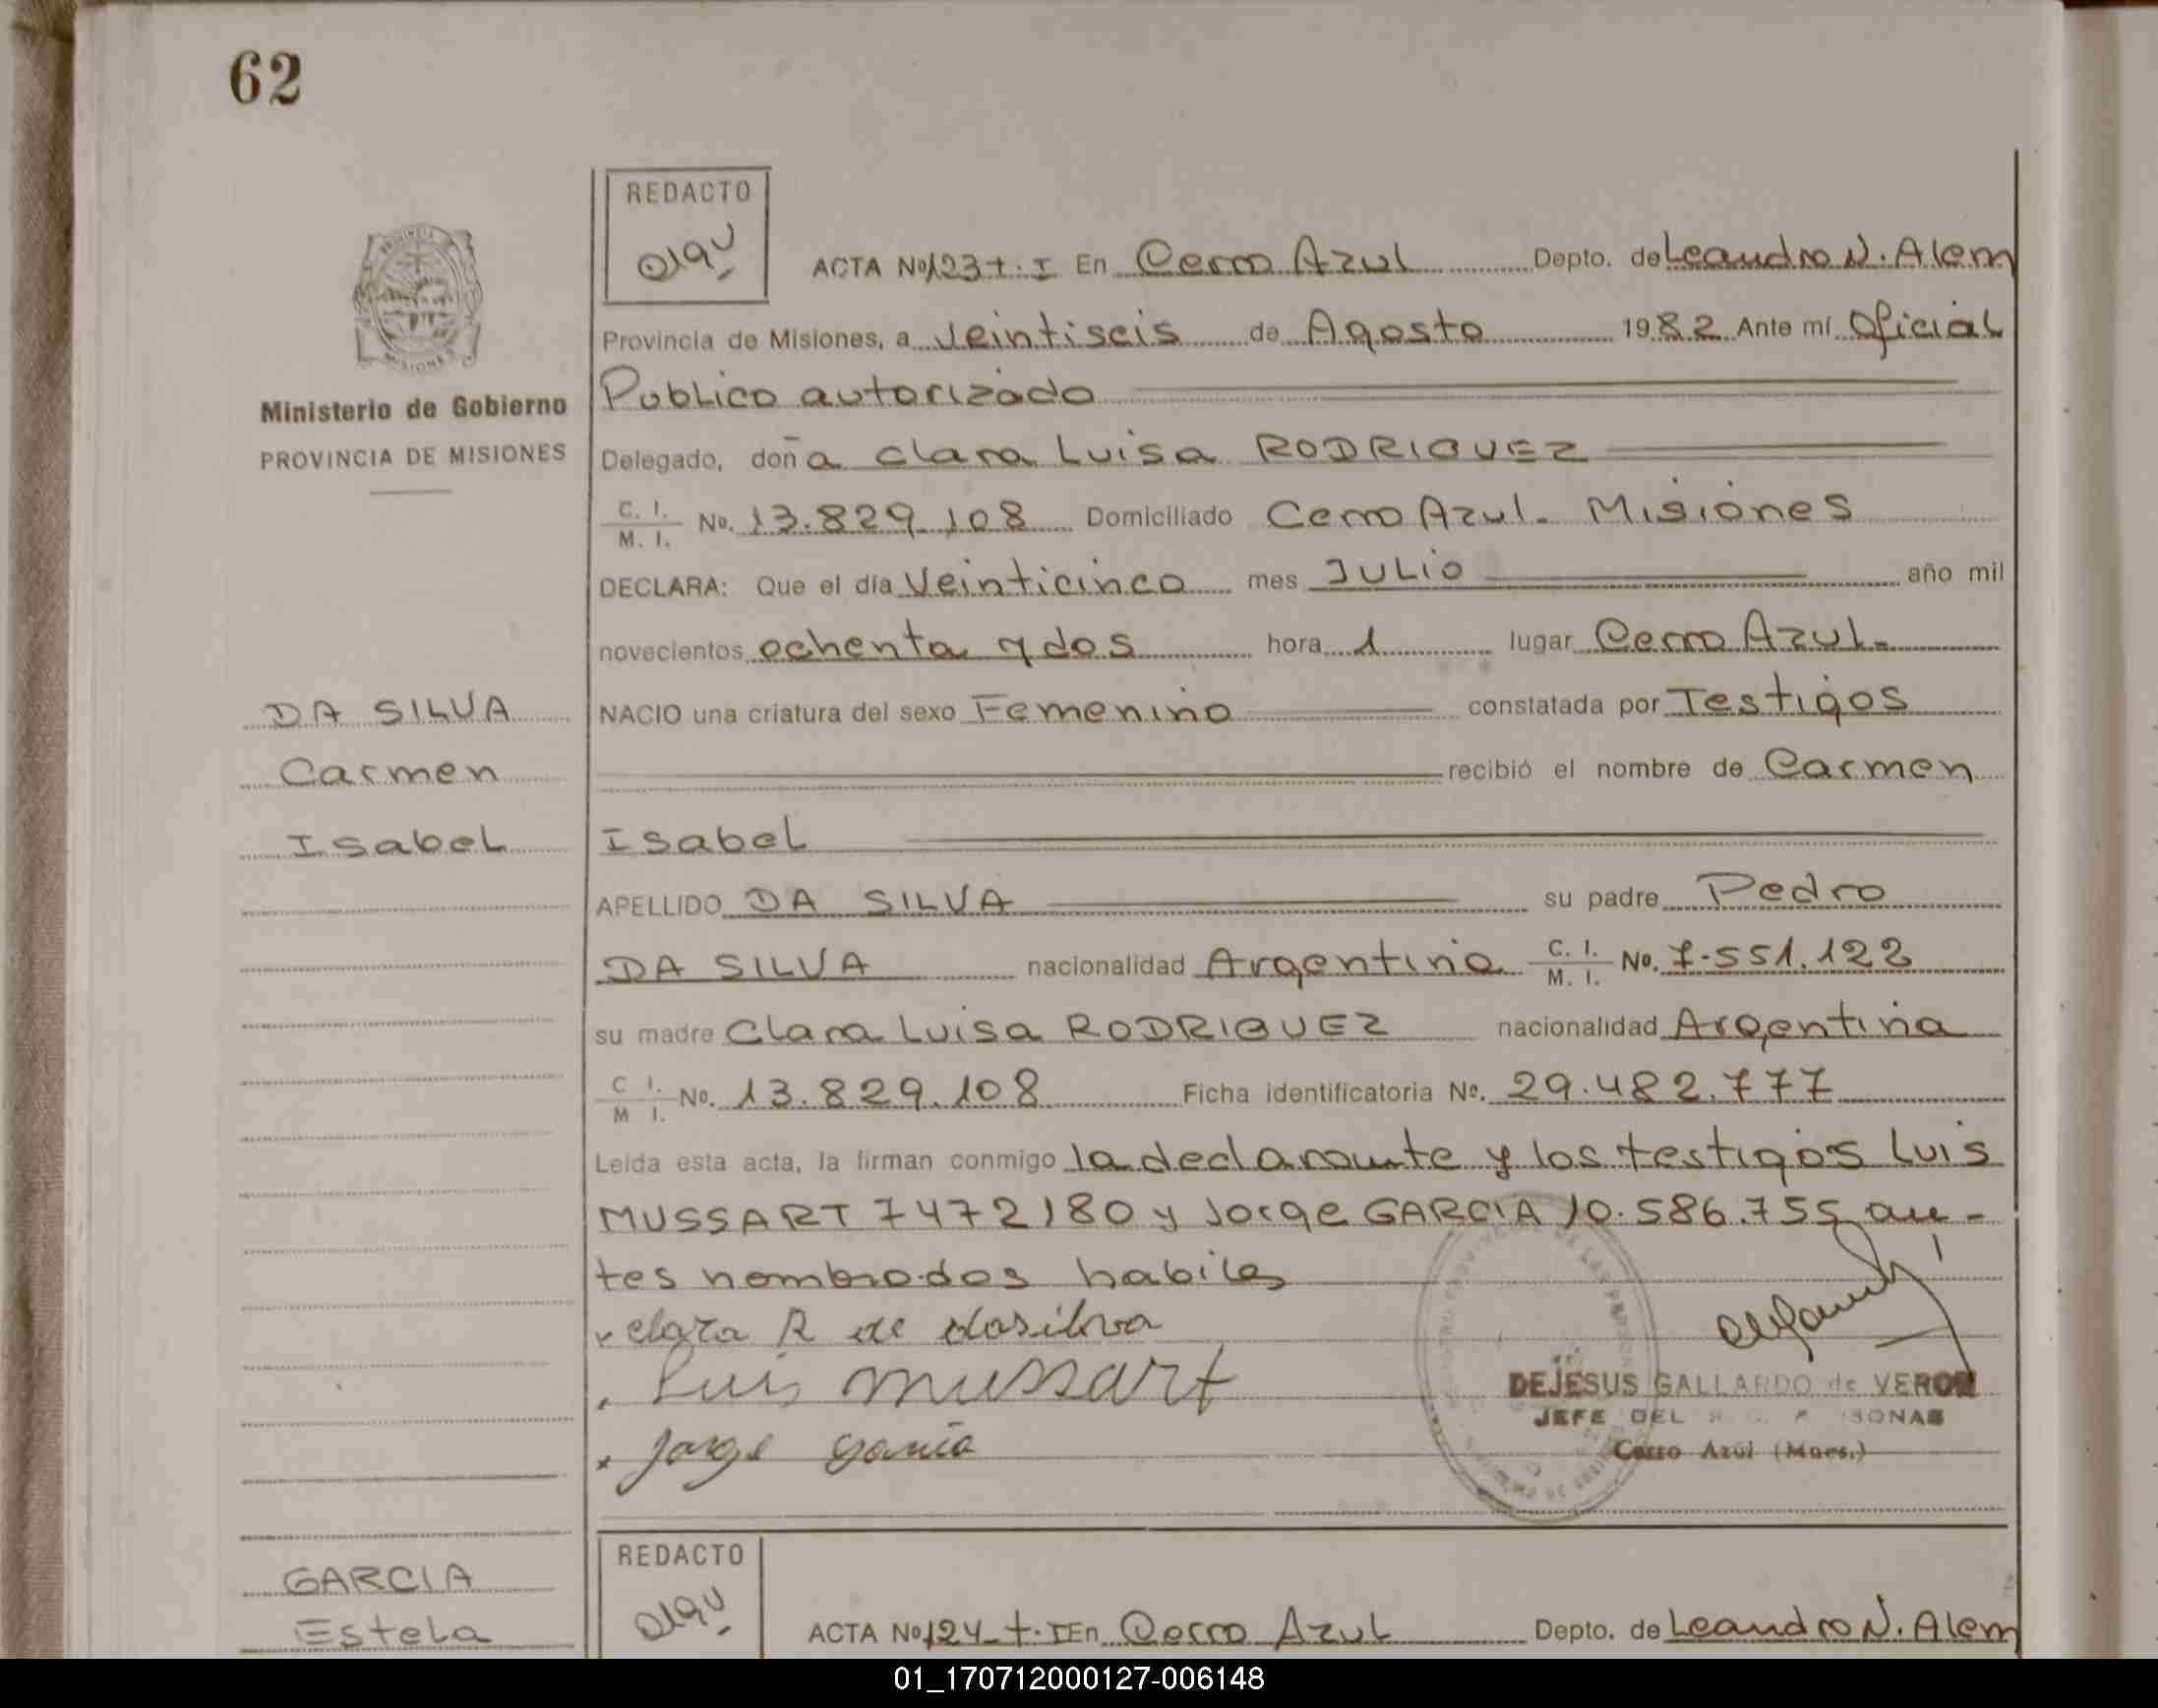 62
REDACTO
ACTA No 123 t. I En Cerro Azul Depto. de Leandro N. Alem
Provincia de Misiones, a Veintiseis de Agosto 1982 Ante mí Oficial
Ministerio de Gobierno
Publico autorizado
PROVINCIA DE MISIONES
Delegado, doña Clara Luisa RODRIGUEZ
C. I. M. I. No. 13.829.108 Domiciliado Cerro Azul - Misiones
DECLARA: Que el día Veinticinco mes JULIO año mil
novecientos ochenta y dos hora 1 lugar Cerro Azul-
DA SILVA
NACIO una criatura del sexo Femenino constatada por Testigos
Carmen
recibió el nombre de Carmen
Isabel
Isabel
APELLIDO DA SILVA su padre Pedro
DA SILVA nacionalidad Argentina C. I. M. I. No. 7.551.122
su madre Clara Luisa RODRIGUEZ nacionalidad Argentina
C I. M I. No. 13.829.108 Ficha identificatoria No. 29.482.777
Leída esta acta, la firman conmigo la declarante y los testigos Luis
MUSSART 7472180 y Jorge GARCIA 10.586.755 an-
tes nombrados habiles
clara R de dasilva
Luis mussart
DEJESUS GALLARDO de VERON
JEFE DEL
Jorge Garcia
Cerro Azul (Mnes.)
REDACTO
GARCIA
Estela
ACTA No 124 t. I En Cerro Azul Depto. de Leandro N. Alem
01_170712000127-006148